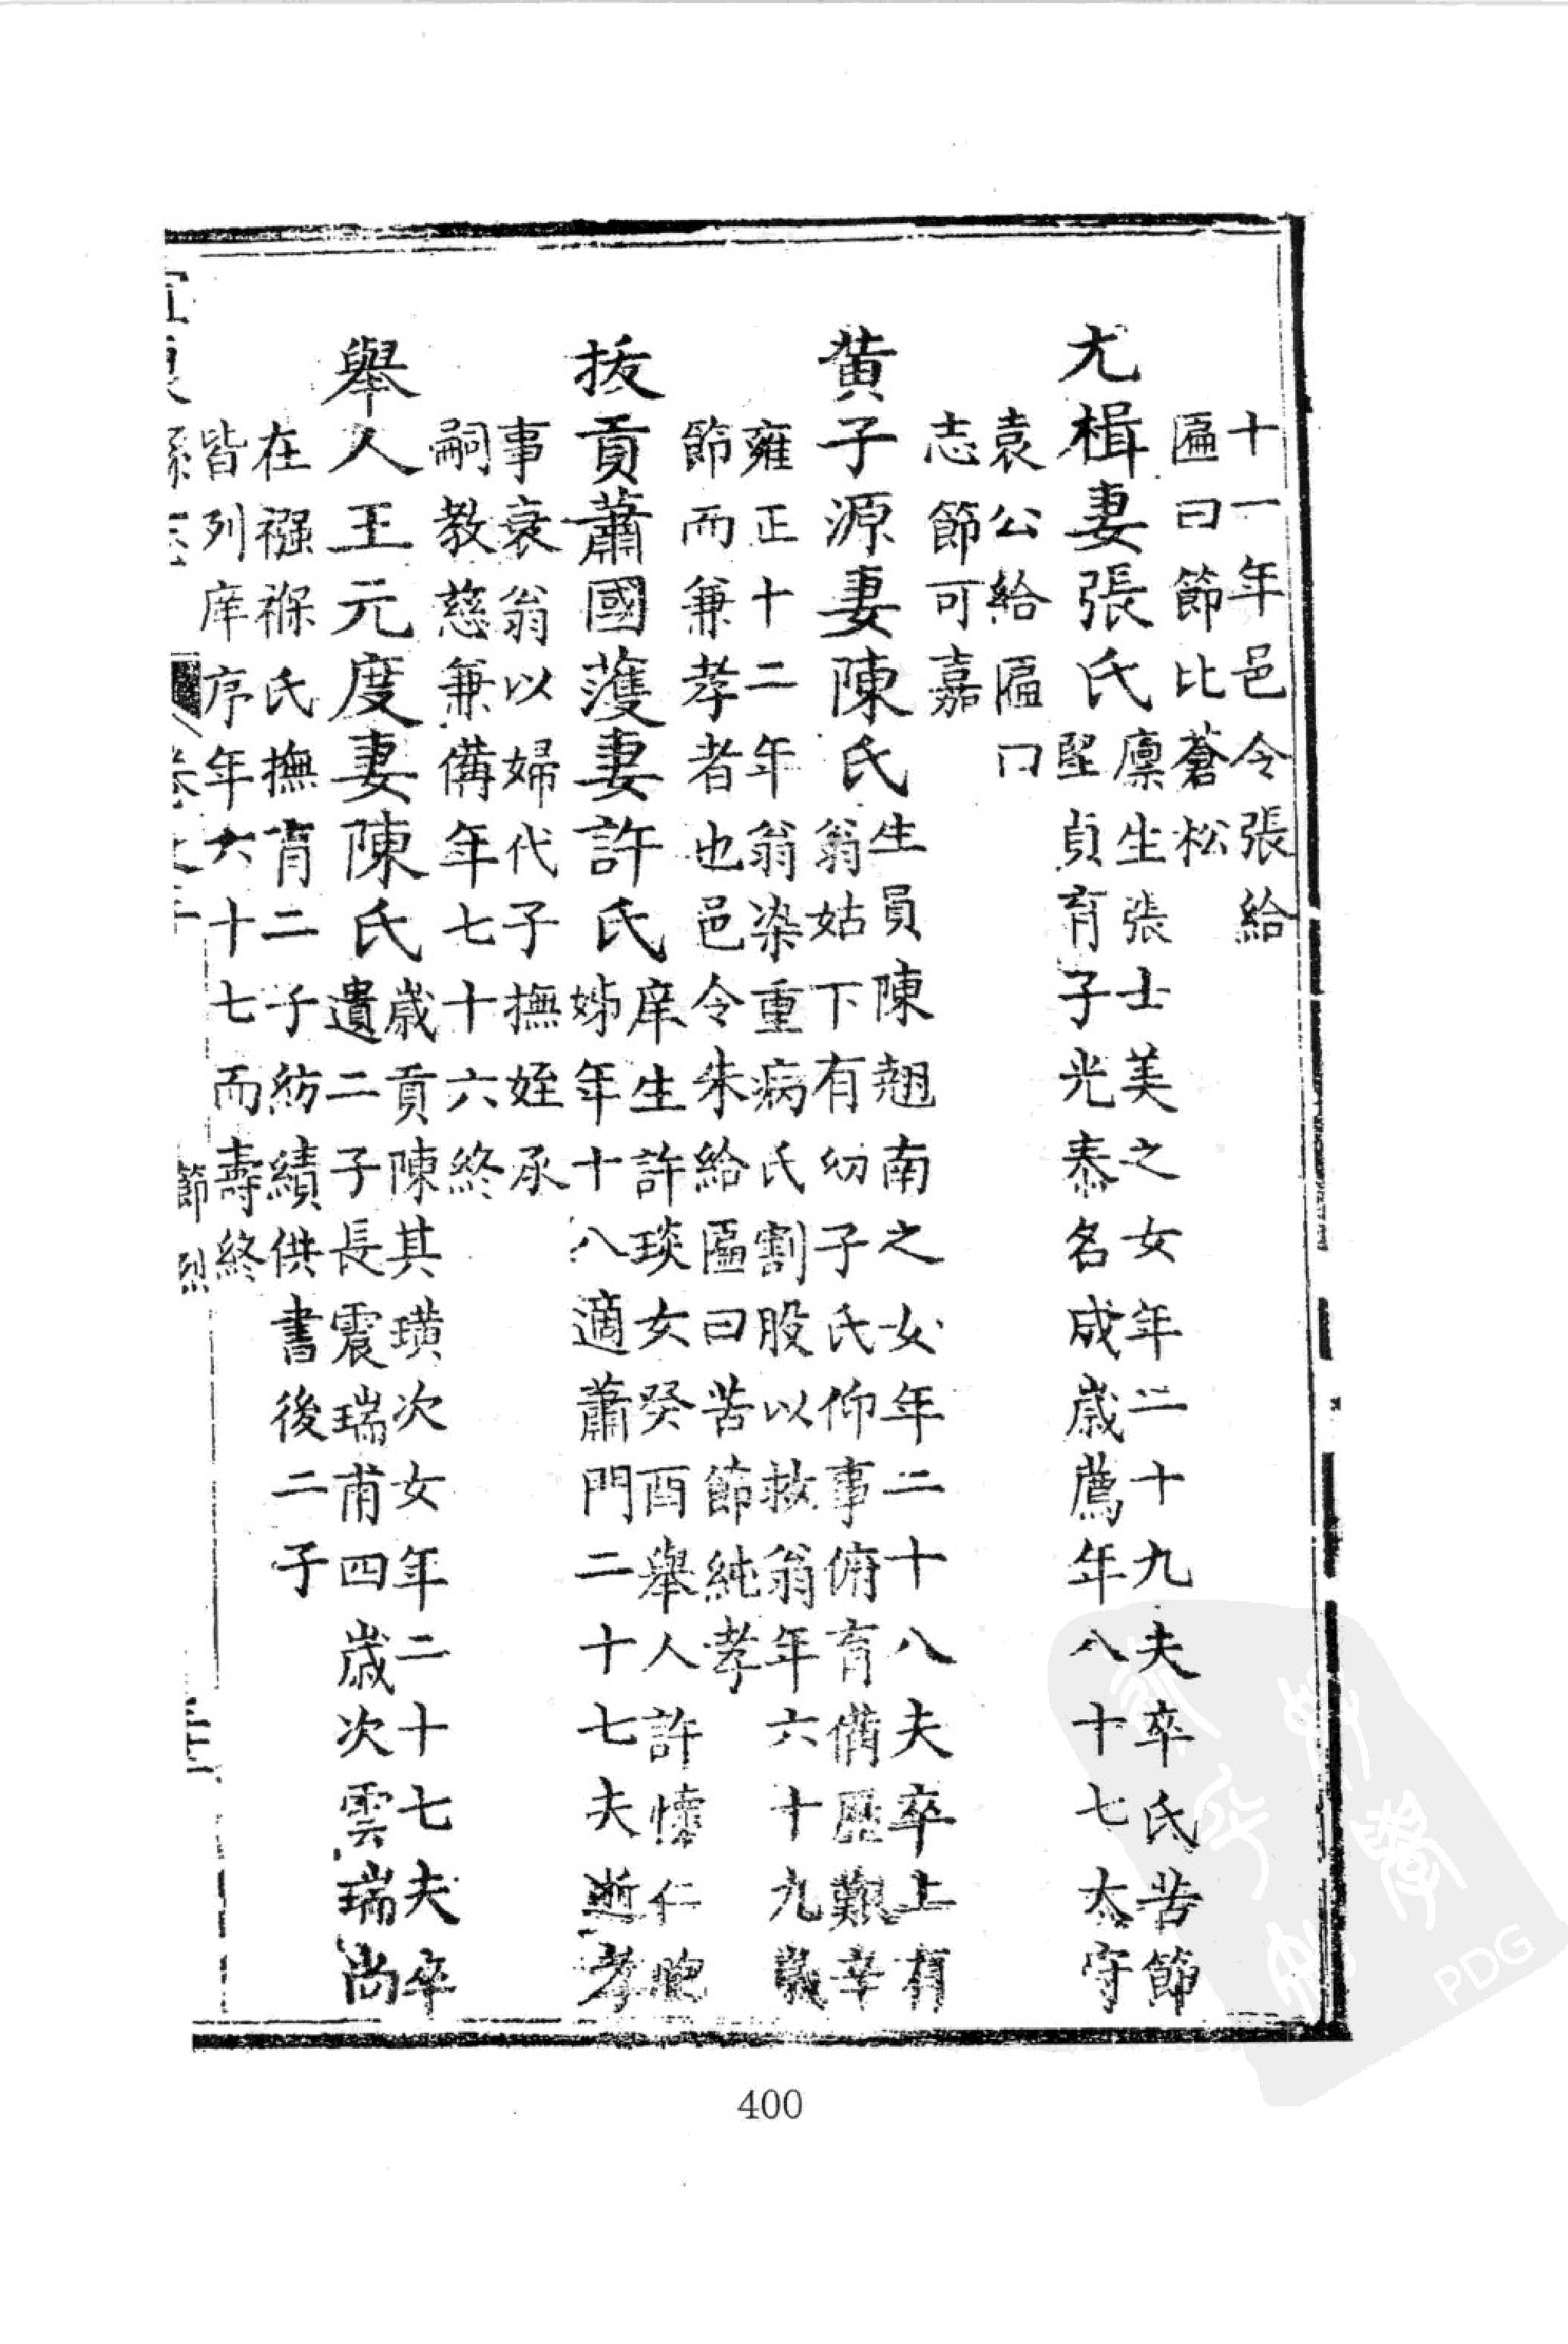 十一年邑令張給
匾曰節比蒼松
尤楫妻張氏
廩生張士美之女年二十九夫卒氏苦節
堅貞育子光泰名成歲薦年八十七太守
袁公給匾曰
志節可嘉
黃子源妻陳氏
生員陳翹南之女年二十八夫卒上有
翁姑下有幼子氏仰事俯育備歷艱辛
雍正十二年翁染重病氏割股以救翁年六十九歲
節而兼孝者也邑令朱給匾曰苦節純孝
拔貢蕭國蒦妻許氏
庠生許琰女癸酉舉人許懷仁胞
姊年十八適蕭門二十七夫逝孝
事衰翁以婦代子撫姪承
嗣教慈兼備年七十六終
舉人王元度妻陳氏
歲貢陳其璜次女年二十七夫卒
遺二子長震瑞甫四歲次雲瑞尚
在襁褓氏撫育二子紡績供書後二子
皆列庠序年六十七而壽終
節烈
400
PDG